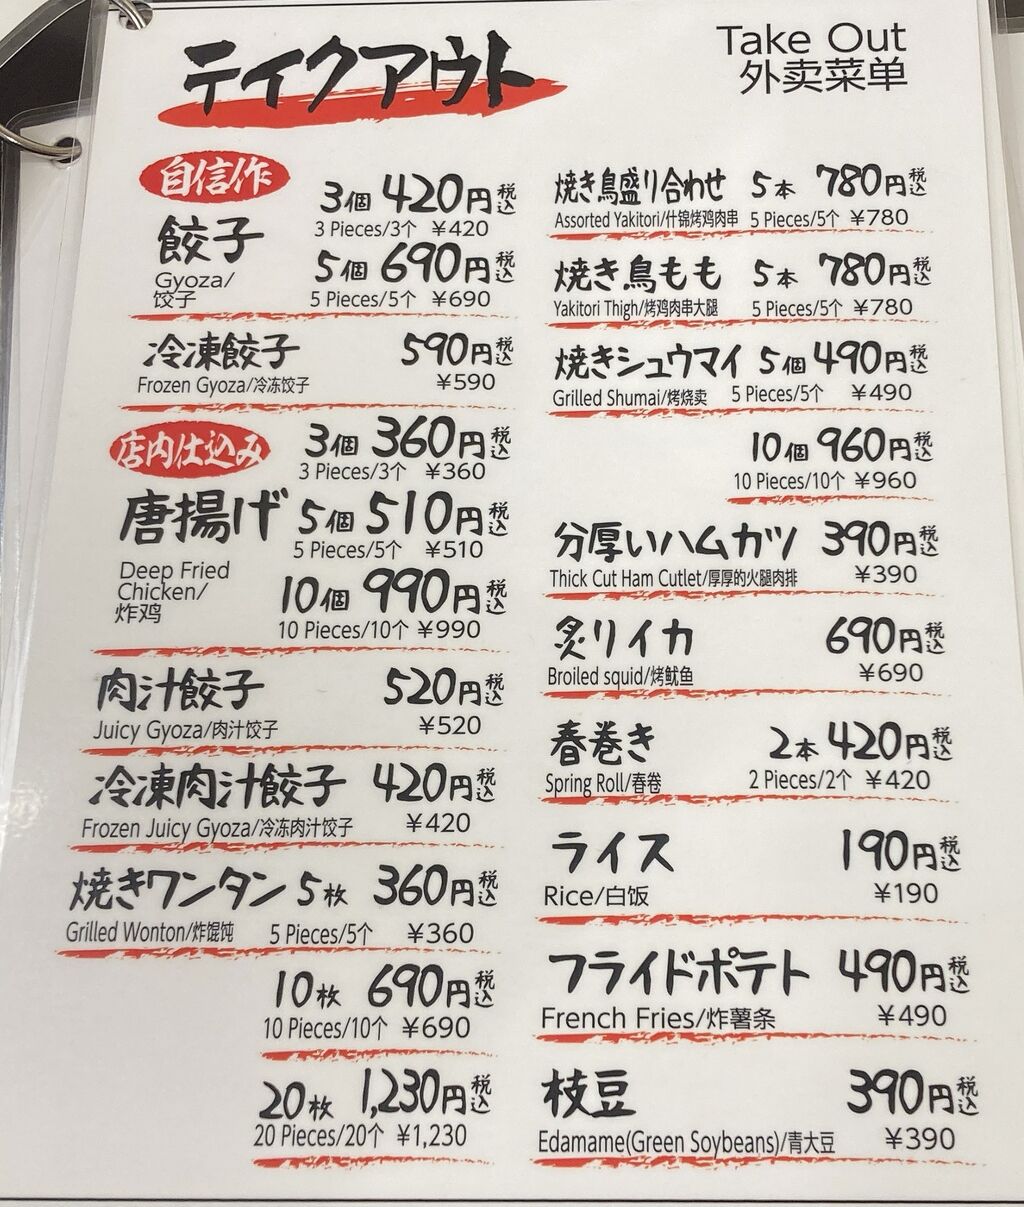 テイクアウト
Take Out
外卖菜单
自信作
餃子
Gyoza/
饺子
3個 420円 税込
3 Pieces/3个 ¥420
5個 690円 税込
5 Pieces/5个 ¥690
冷凍餃子 590円 税込
Frozen Gyoza/冷冻饺子 ¥590
店内仕込み
唐揚げ
Deep Fried
Chicken/
炸鸡
3個 360円 税込
3 Pieces/3个 ¥360
5個 510円 税込
5 Pieces/5个 ¥510
10個 990円 税込
10 Pieces/10个 ¥990
肉汁餃子 520円 税込
Juicy Gyoza/肉汁饺子 ¥520
冷凍肉汁餃子 420円 税込
Frozen Juicy Gyoza/冷冻肉汁饺子 ¥420
焼きワンタン 5枚 360円 税込
Grilled Wonton/炸馄饨 5 Pieces/5个 ¥360
10枚 690円 税込
10 Pieces/10个 ¥690
20枚 1,230円 税込
20 Pieces/20个 ¥1,230
焼き鳥盛り合わせ 5本 780円 税込
Assorted Yakitori/什锦烤鸡肉串 5 Pieces/5个 ¥780
焼き鳥もも 5本 780円 税込
Yakitori Thigh/烤鸡肉串大腿 5 Pieces/5个 ¥780
焼きシュウマイ 5個 490円 税込
Grilled Shumai/烤烧卖 5 Pieces/5个 ¥490
10個 960円 税込
10 Pieces/10个 ¥960
分厚いハムカツ 390円 税込
Thick Cut Ham Cutlet/厚厚的火腿肉排 ¥390
炙りイカ 690円 税込
Broiled squid/烤鱿鱼 ¥690
春巻き 2本 420円 税込
Spring Roll/春卷 2 Pieces/2个 ¥420
ライス 190円 税込
Rice/白饭 ¥190
フライドポテト 490円 税込
French Fries/炸薯条 ¥490
枝豆 390円 税込
Edamame(Green Soybeans)/青大豆 ¥390